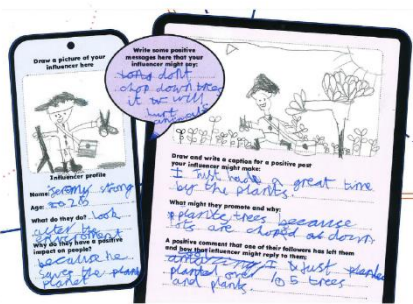 Draw a picture of your
influencer here
Influencer profile
Name: Jeremy strong
Age: 20
What do they do? Look
after the
environment
Why do they have a positive
impact on people?
because he
saves the
planet
Write some positive
messages here that your
influencer might say:
dont
chop down trees
it will
hurt
animals
Draw and write a caption for a positive post
your influencer might make:
I just had a great time
by the plants.
What might they promote and why:
plante trees because
lots are choped down.
A positive comment that one of their followers has left them
and how that influencer might reply to them:
amazing I just
planted 5 trees
and plants